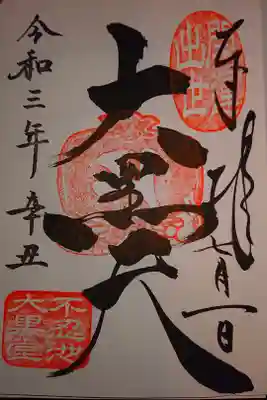 奉拝 七月一日
開運
出世
大黒天
令和三年 辛丑
不忍池
大黒堂